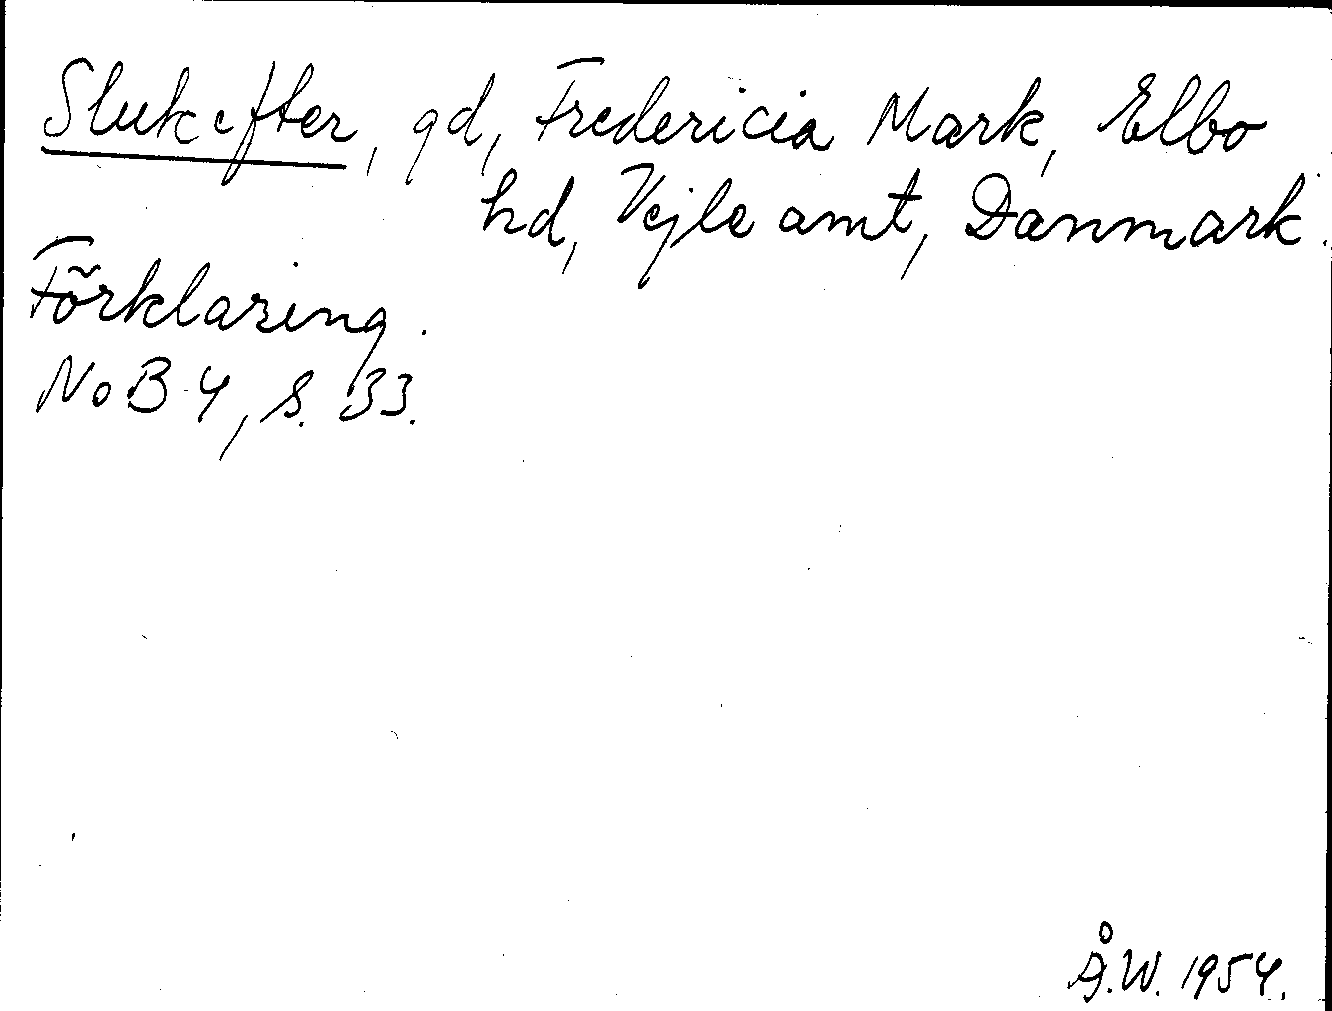 Slukefter, gd, Fredericia Mark, Elbo
hd, Vejle amt, Danmark.
Förklaring.
NoB 4, s. 33.
Å.W. 1954.